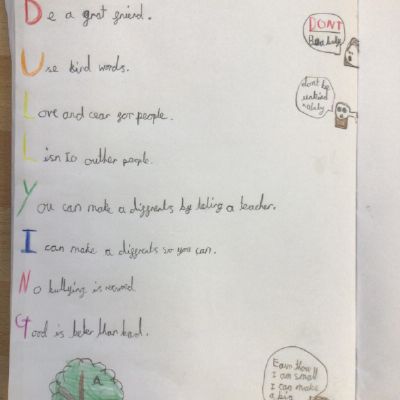 Be a grat friend.
DONT
Be a bully
Use kind words.
dont be
unkind
Love and cear for people.
Lisn to outher people.
You can make a diffrents by teling a teacher.
I can make a diffrents so you can.
No bullying is
Good is beter than bad.
Eavn thow
I am small
I can make
a big
A